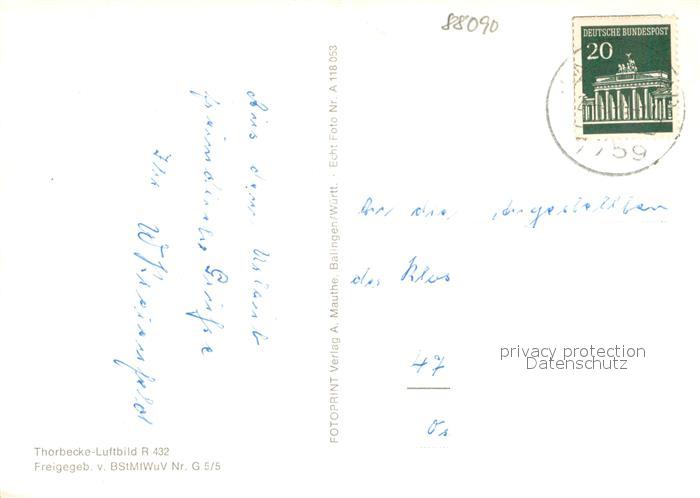 88090
DEUTSCHE BUNDESPOST
20
7759
Aus dem Urlaub
freundliche Grüße
Ihr W
FOTOPRINT Verlag A. Mauthe, Balingen/Württ. · Echt Foto Nr. A 118 053
An die Angestellten
der Klos
47
Os
privacy protection
Datenschutz
Thorbecke-Luftbild R 432
Freigegeb. v. BStMfWuV Nr. G 5/5